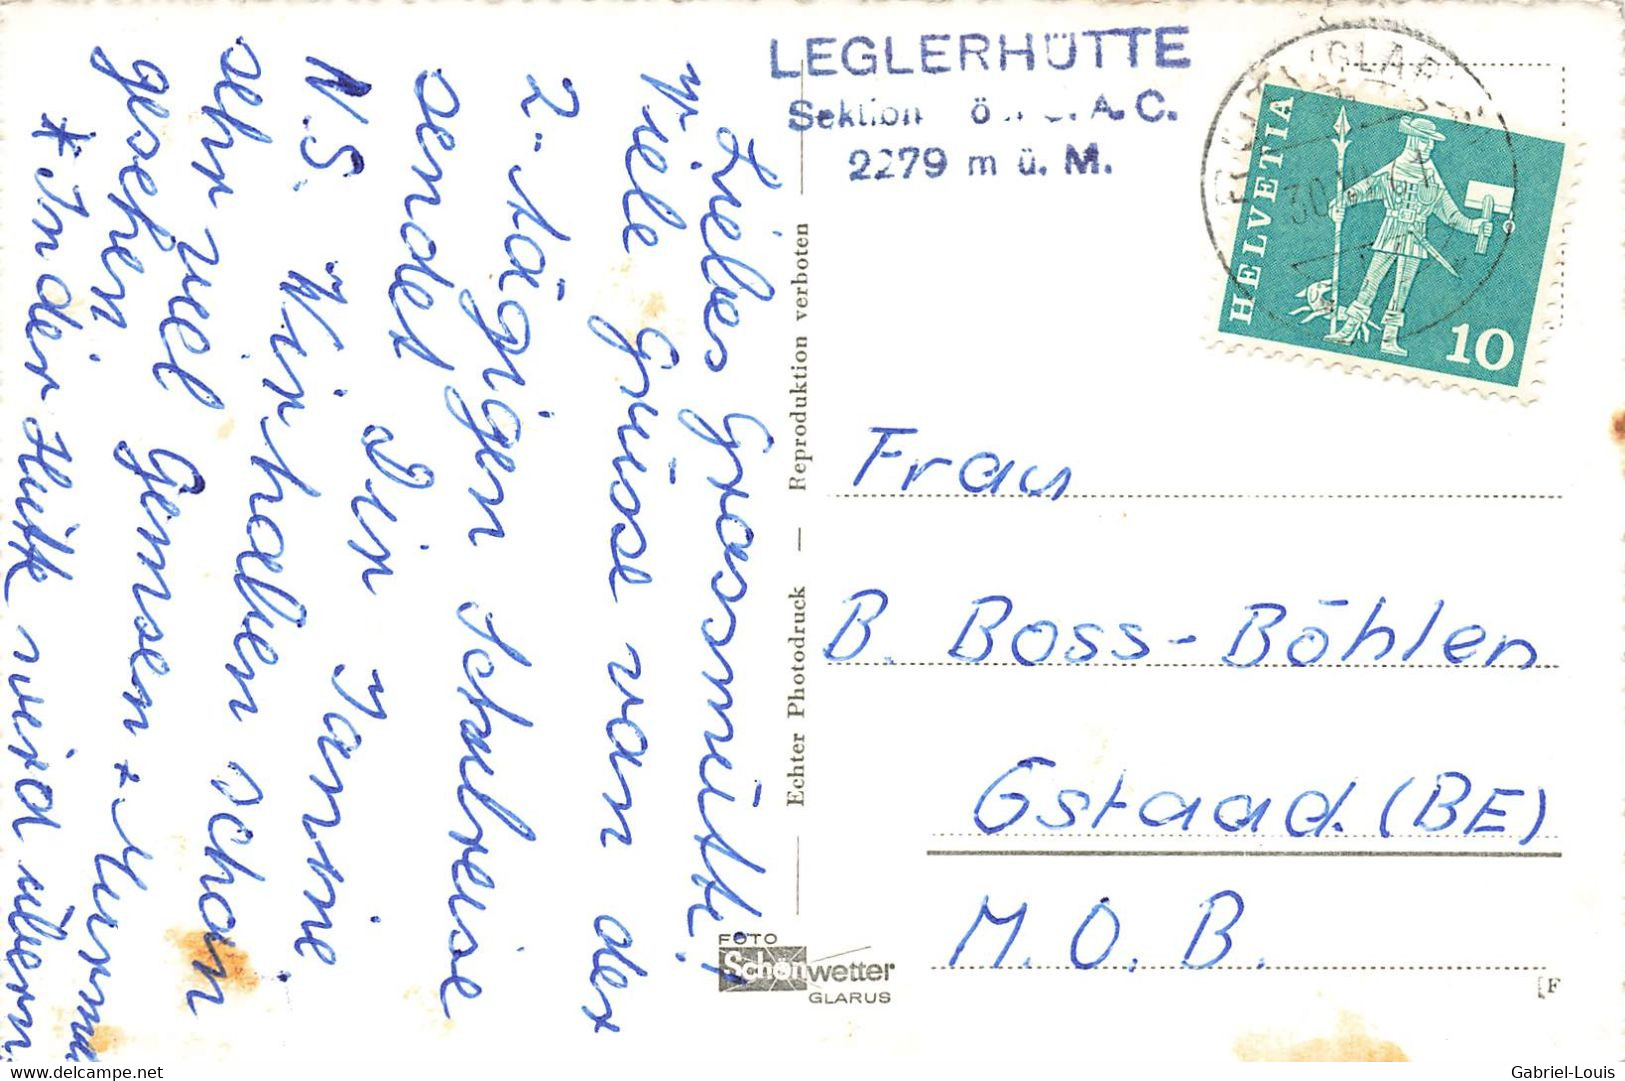 Liebes Grossmütti!
Viele Grüsse von der
2-tägigen Schulreise
sendet Dir Janine
N.S. Wir haben schon
sehr viel Gemsen + Murmel
gesehen.
* In der Hütte wird übern
LEGLERHÜTTE
Sektion A. C.
2279 m ü. M.
HELVETIA
10
Reproduktion verboten
Echter Photodruck
Frau
B. Boss-Böhlen
Gstaad. (BE)
M. O. B.
FOTO
Schönwetter
GLARUS
F
www.delcampe.net
Gabriel-Louis